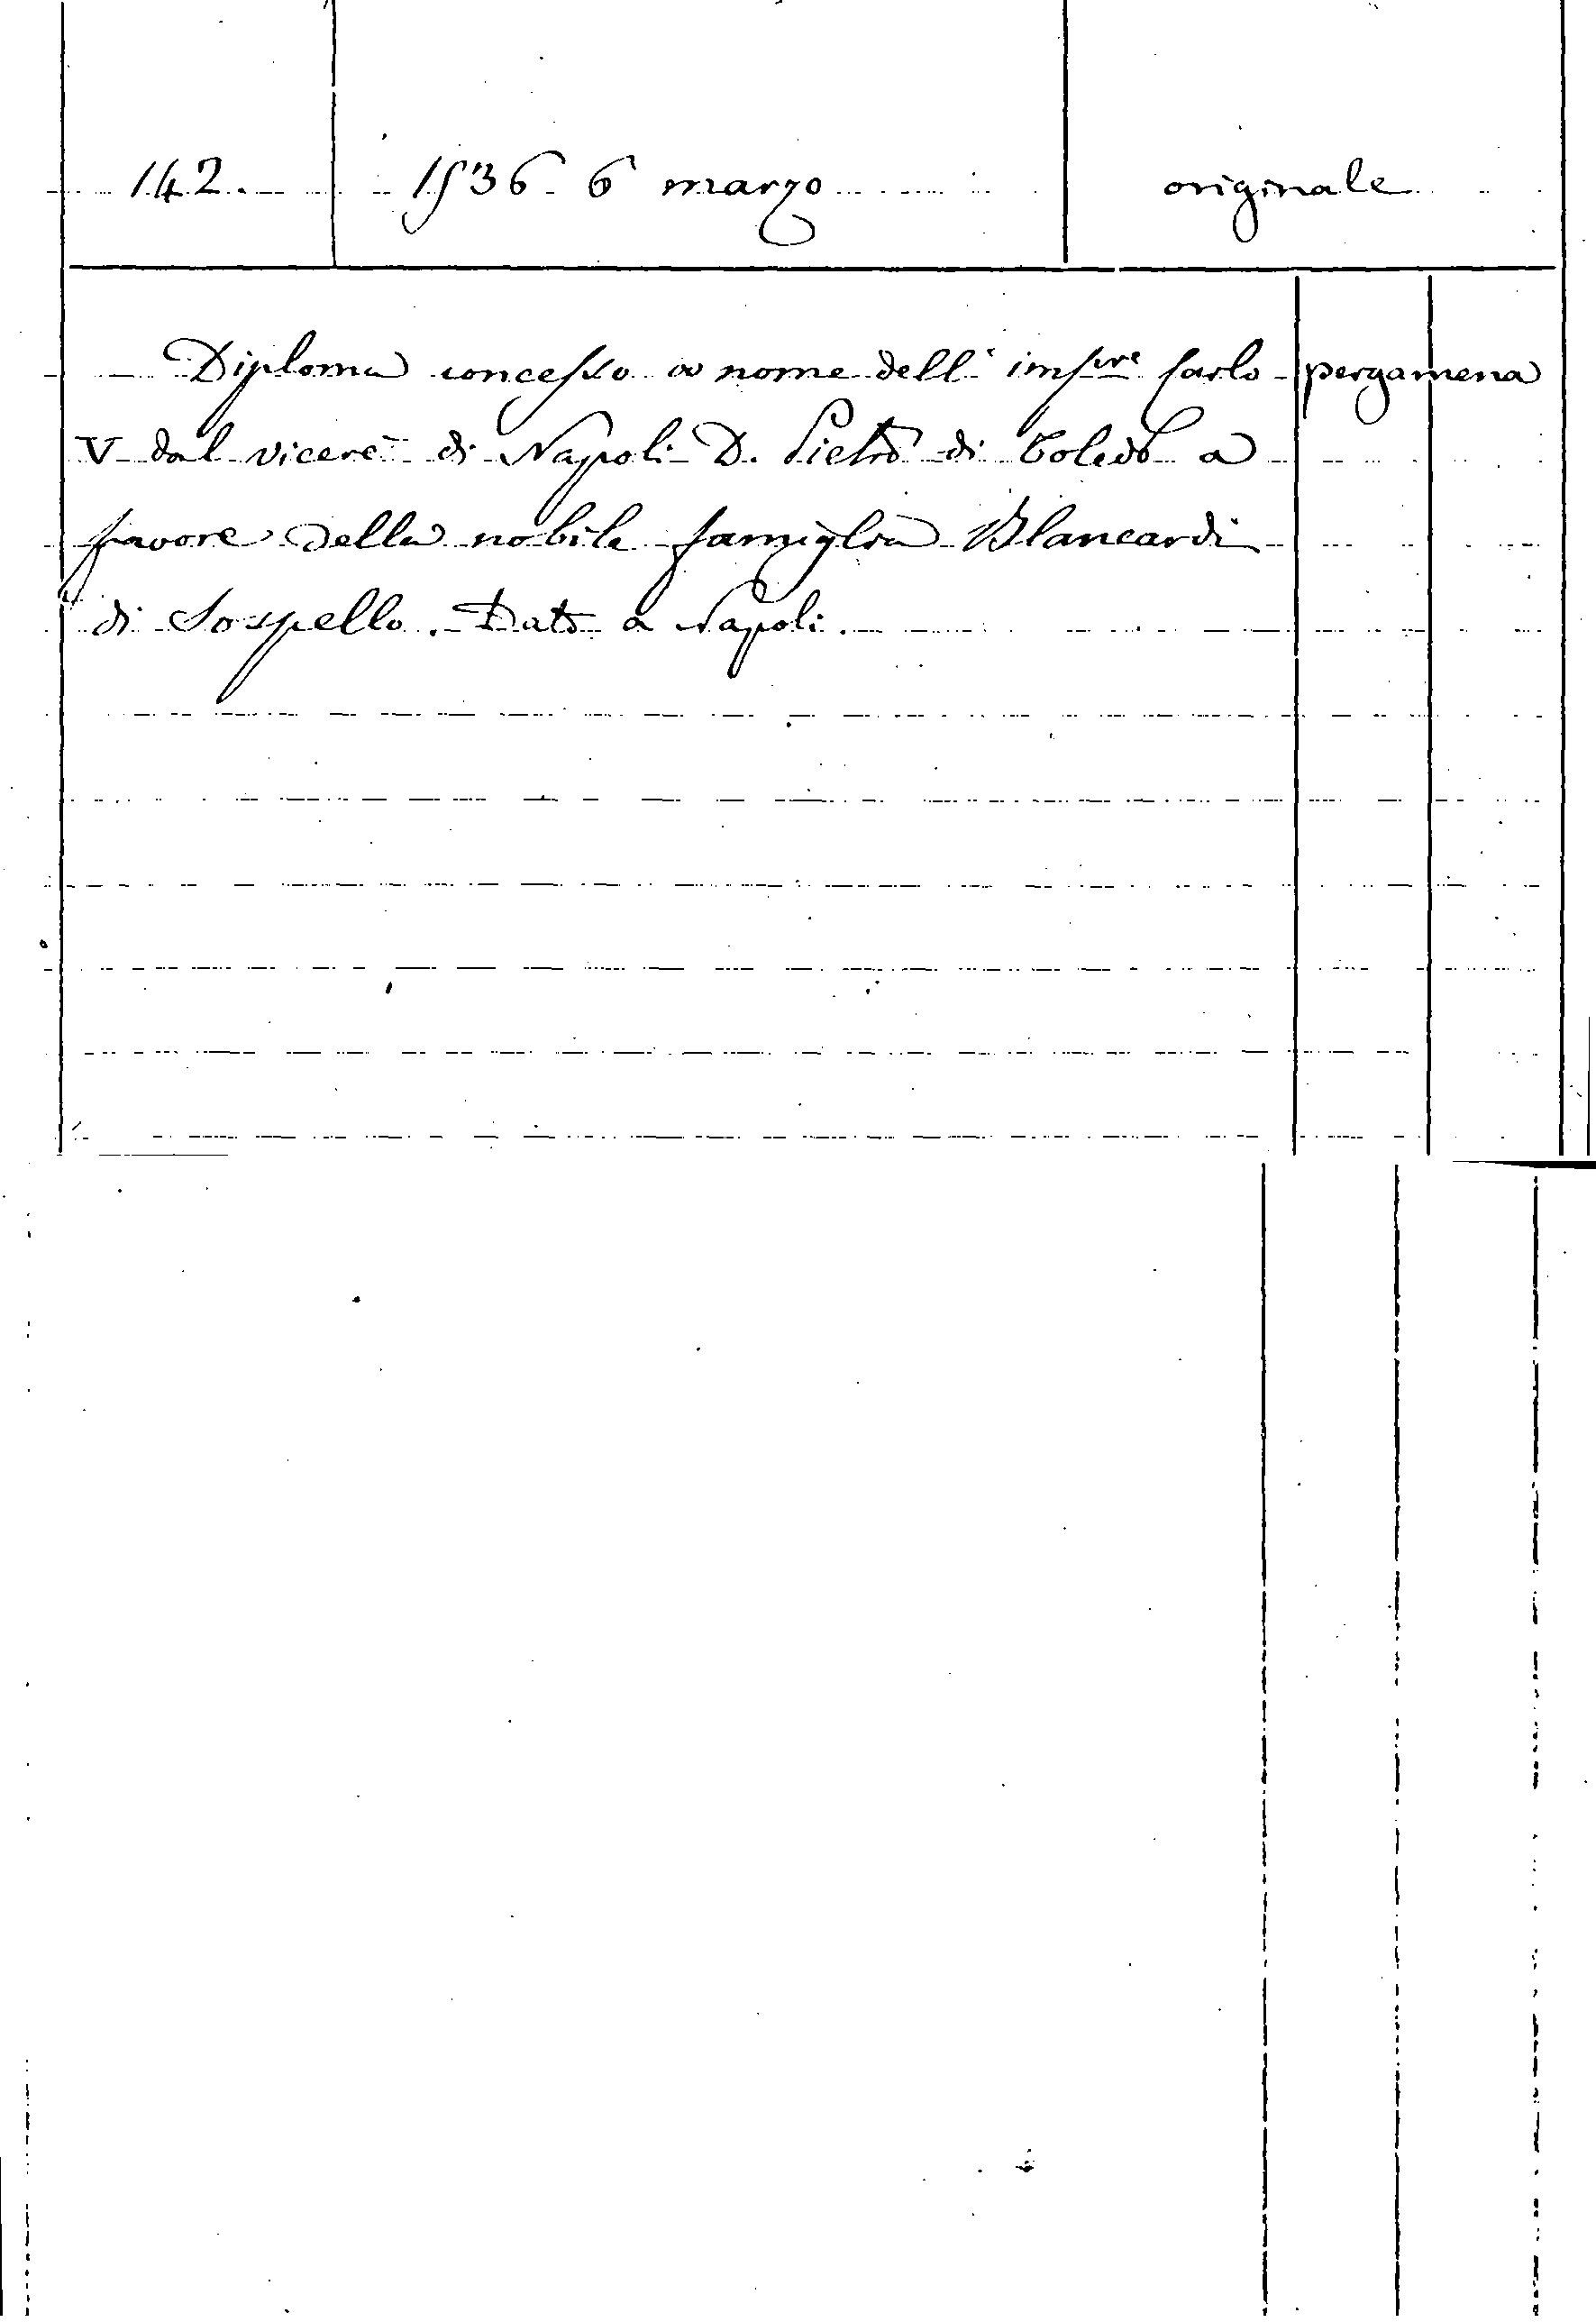 142. 1536 6 marzo originale
Diploma concesso a nome dell' imp.re Carlo pergamena
V dal vicerè di Napoli D. Pietro di Toledo a
favore della nobile famiglia Blancardi
di Sospello. Dato a Napoli.